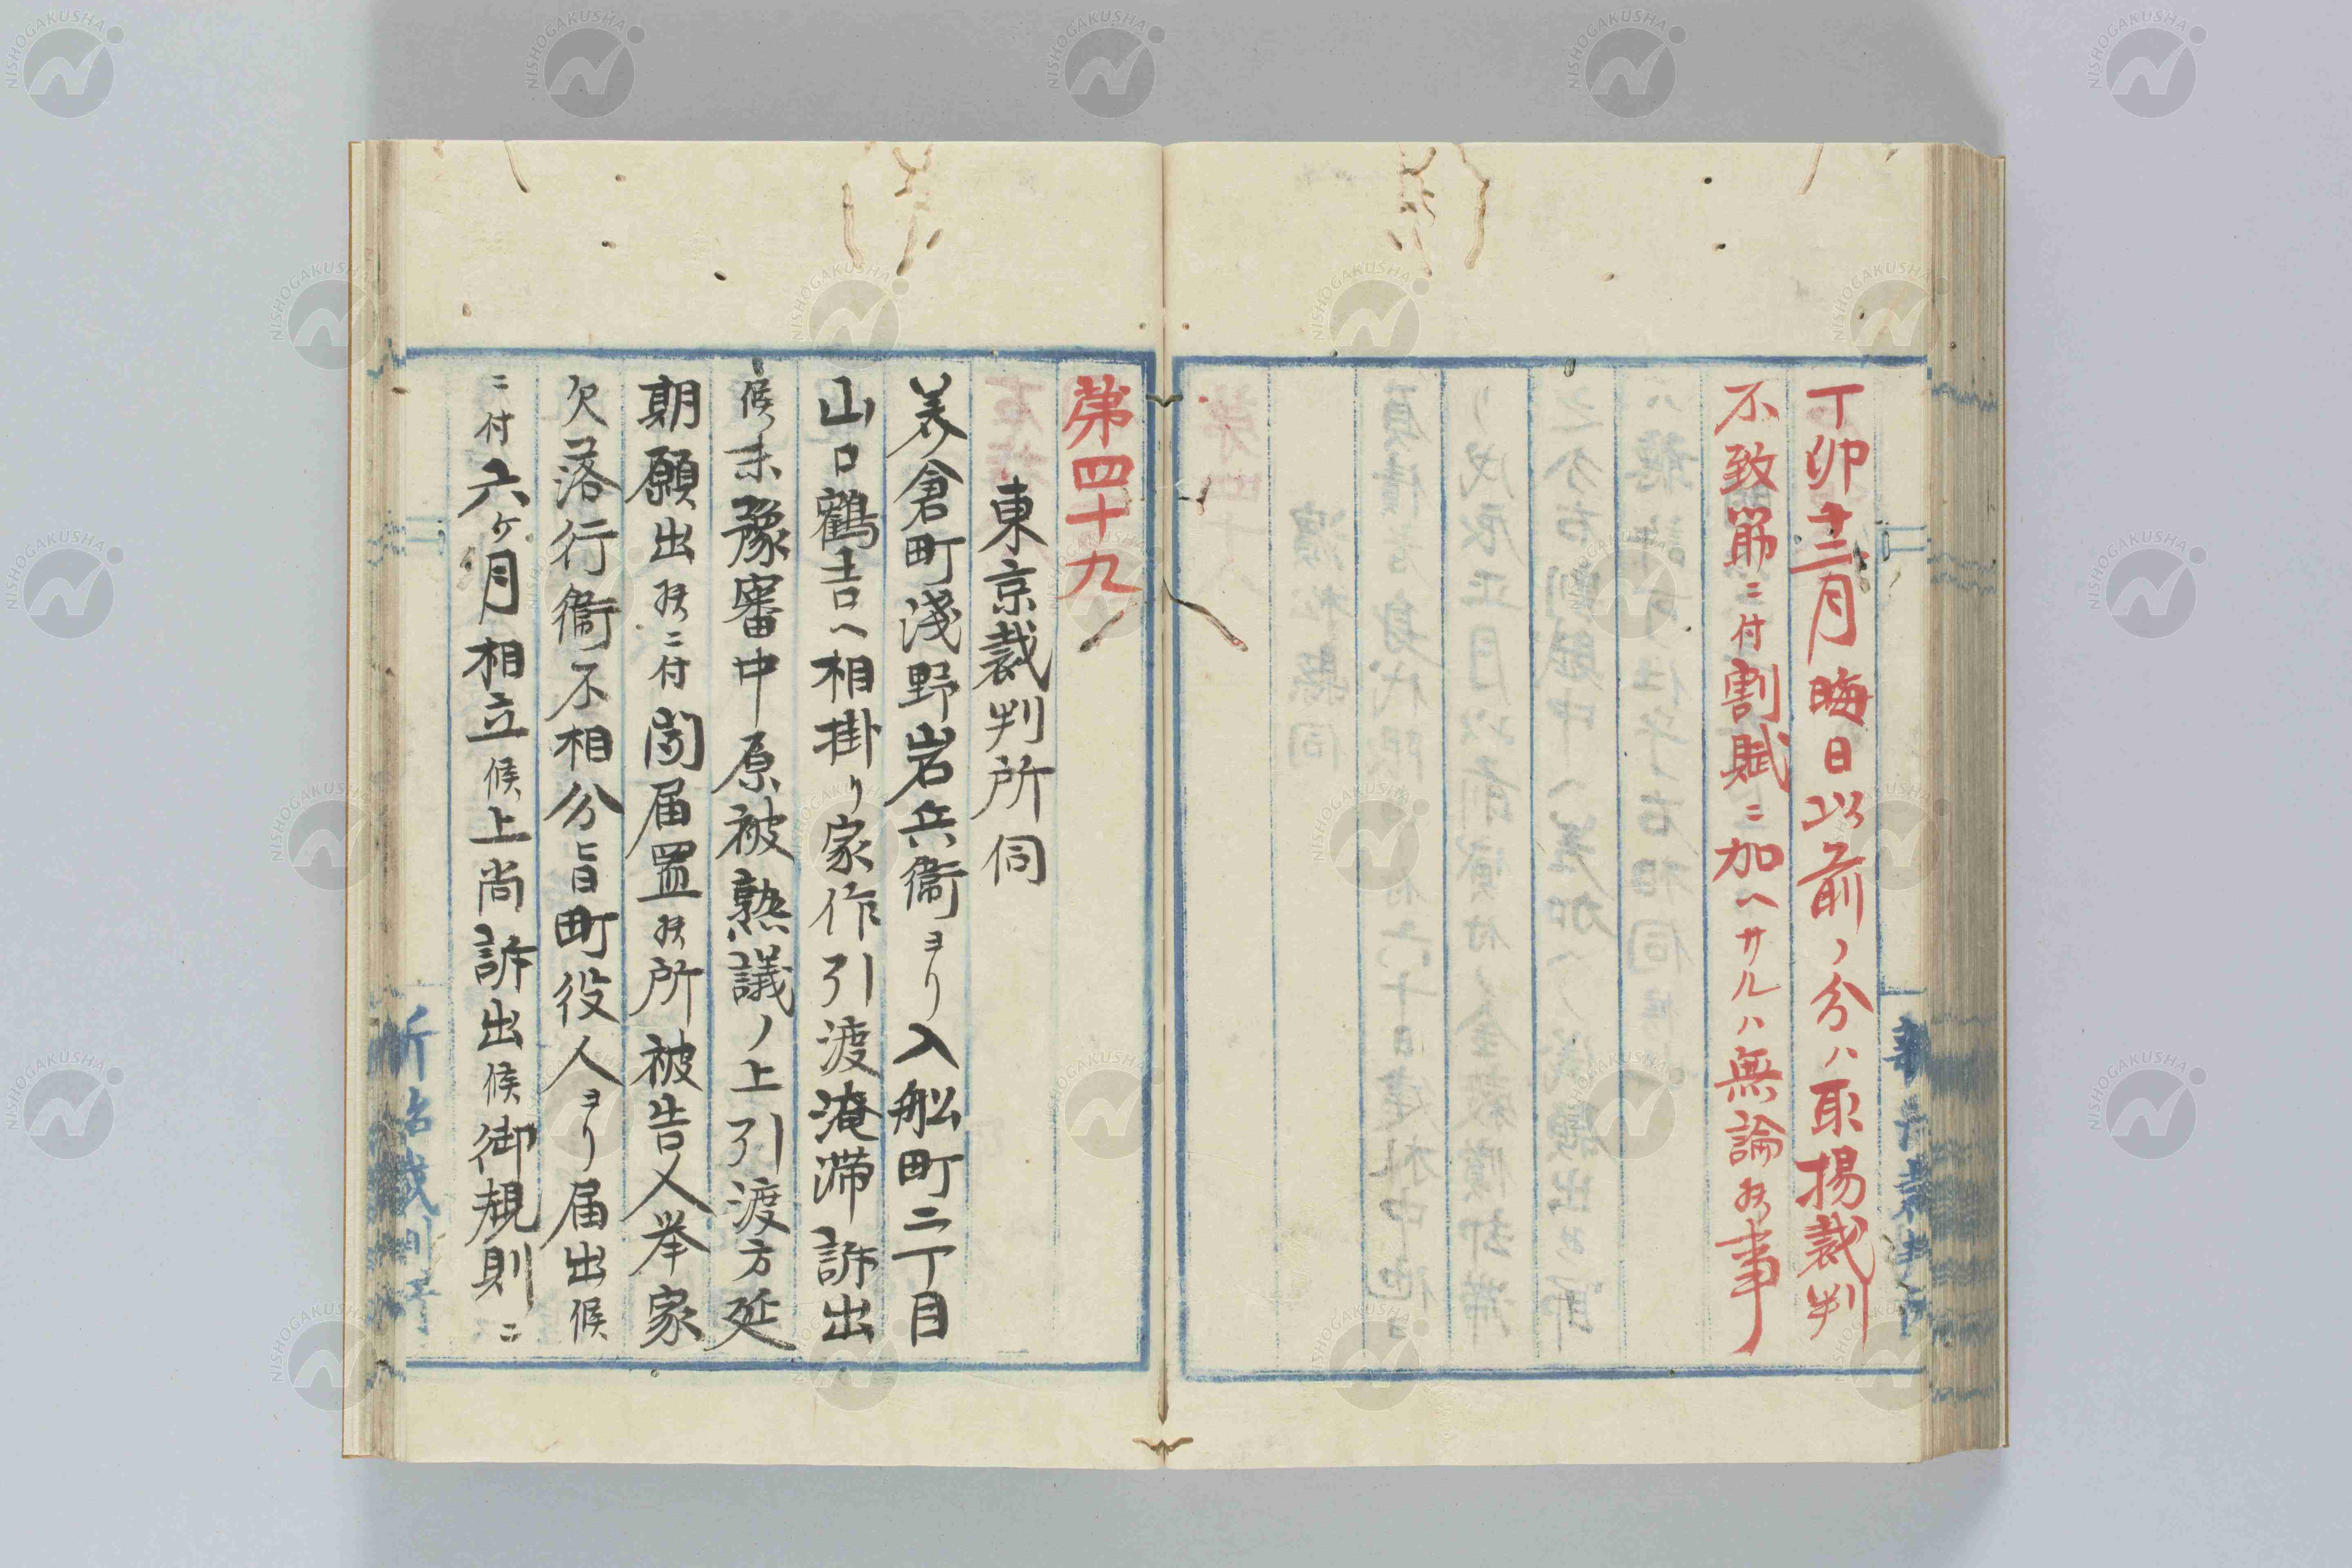 丁卯十二月晦日以前ノ分ハ取揚裁判
不致筋ニ付割賦ニ加ヘサルハ無論ナル事
第四十九
東京裁判所伺
美倉町淺野岩兵衛ヨリ入舩町二丁目
山口鶴吉ヘ相掛リ家作引渡淹滞訴出
候ヶ未豫審中原被熟議ノ上引渡方延
期願出候ニ付聞届置候所被告人挙家
欠落行衛不相分旨町役人ヨリ届出候
ニ付六ヶ月相立候上尚訴出候御規則ニ
NISHOGAKUSHA